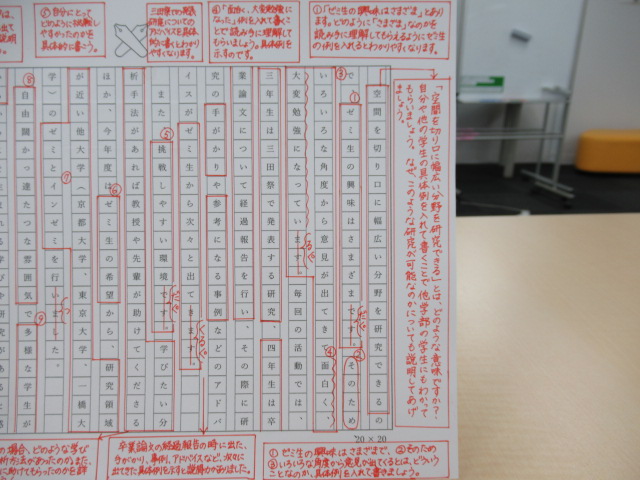 ①「ゼミ生の興味はさまざま」とあり
ます。どのように「さまざま」なのかを
読み手に理解してもらえるようにゼミ生
の例を入れるとわかりやすくなります。
④「面白く、大変勉強に
なった」例を入れて書くこ
とで読み手に理解して
もらいましょう。具体例を
示すのです。
三田祭での発表
研究についての
アドバイスを具体
的に書くとわかり
やすくなります。
⑤自分にとって
どのように挑戦し
やすかったのかを
具体的に書こう。
「空間を切り口に幅広い分野を研究できる」とは、どのような意味ですか?
自分や他の学生の具体例を入れて書くことで他学部の学生にもわかって
もらいましょう。なぜ、このような研究が可能なのかについても説明してあげ
ましょう。
空間を切り口に幅広い分野を研究できるの
③で①ゼミ生の興味はさまざまです。だ②そのため
いろいろな角度から意見が出てきて面白く、④
大変勉強になっています。いる。毎回の活動では、
三年生は三田祭で発表する研究、四年生は卒
業論文について経過報告を行い、その際に研
究の手がかりや参考になる事例などのアドバ
イスがゼミ生から次々と出てきます。くる。
また⑤挑戦しやすい環境です。だ。学びたい分
析手法があれば教授や先輩が助けてくださる
ほか、今年度は⑥ゼミ生の希望から、研究領域
が近い他大学(京都大学、東京大学、一橋大
学)の⑦ゼミとインゼミを行いました。
⑧自由闊かっ達な雰囲気で⑨多様な学生が
20×20
①ゼミ生の興味はさまざまで、②そのため
③いろいろな角度から意見が出てくるとは、どういう
ことなのか、具体例を入れて書きましょう。
卒業論文の経過報告の時に出た、
手がかり、事例、アドバイスなど、次々に
出てきた具体例を示すと説得力があります。